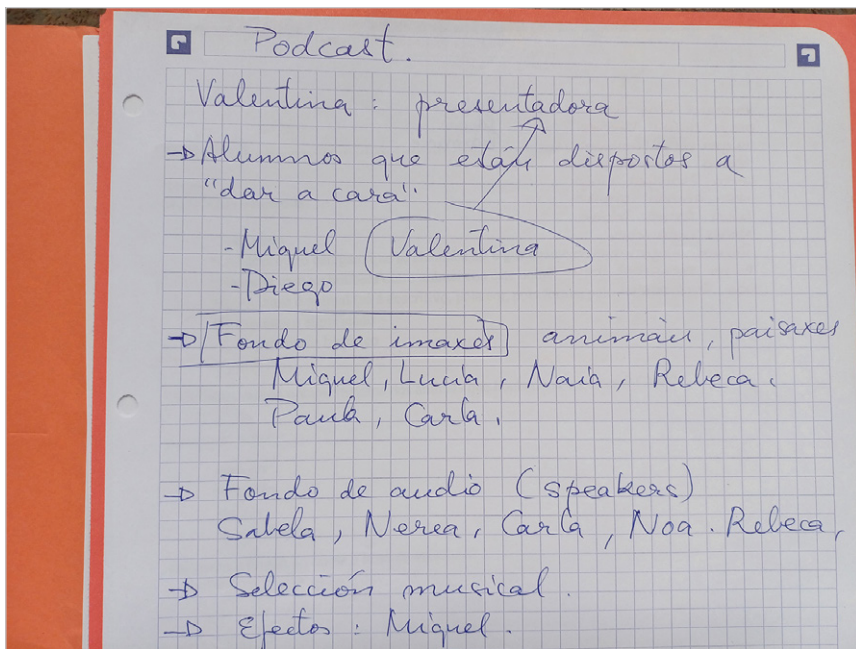 Podcast.
Valentina: presentadora
→ Alumnos que están dispostos a
"dar a cara".
- Miguel Valentina
- Diego
→ Fondo de imaxes animáis, paisaxes
Miguel, Lucía, Naia, Rebeca.
Paula, Carla.
→ Fondo de audio (speakers)
Sabela, Nerea, Carla, Noa. Rebeca,
→ Selección musical.
→ Efectos: Miguel.